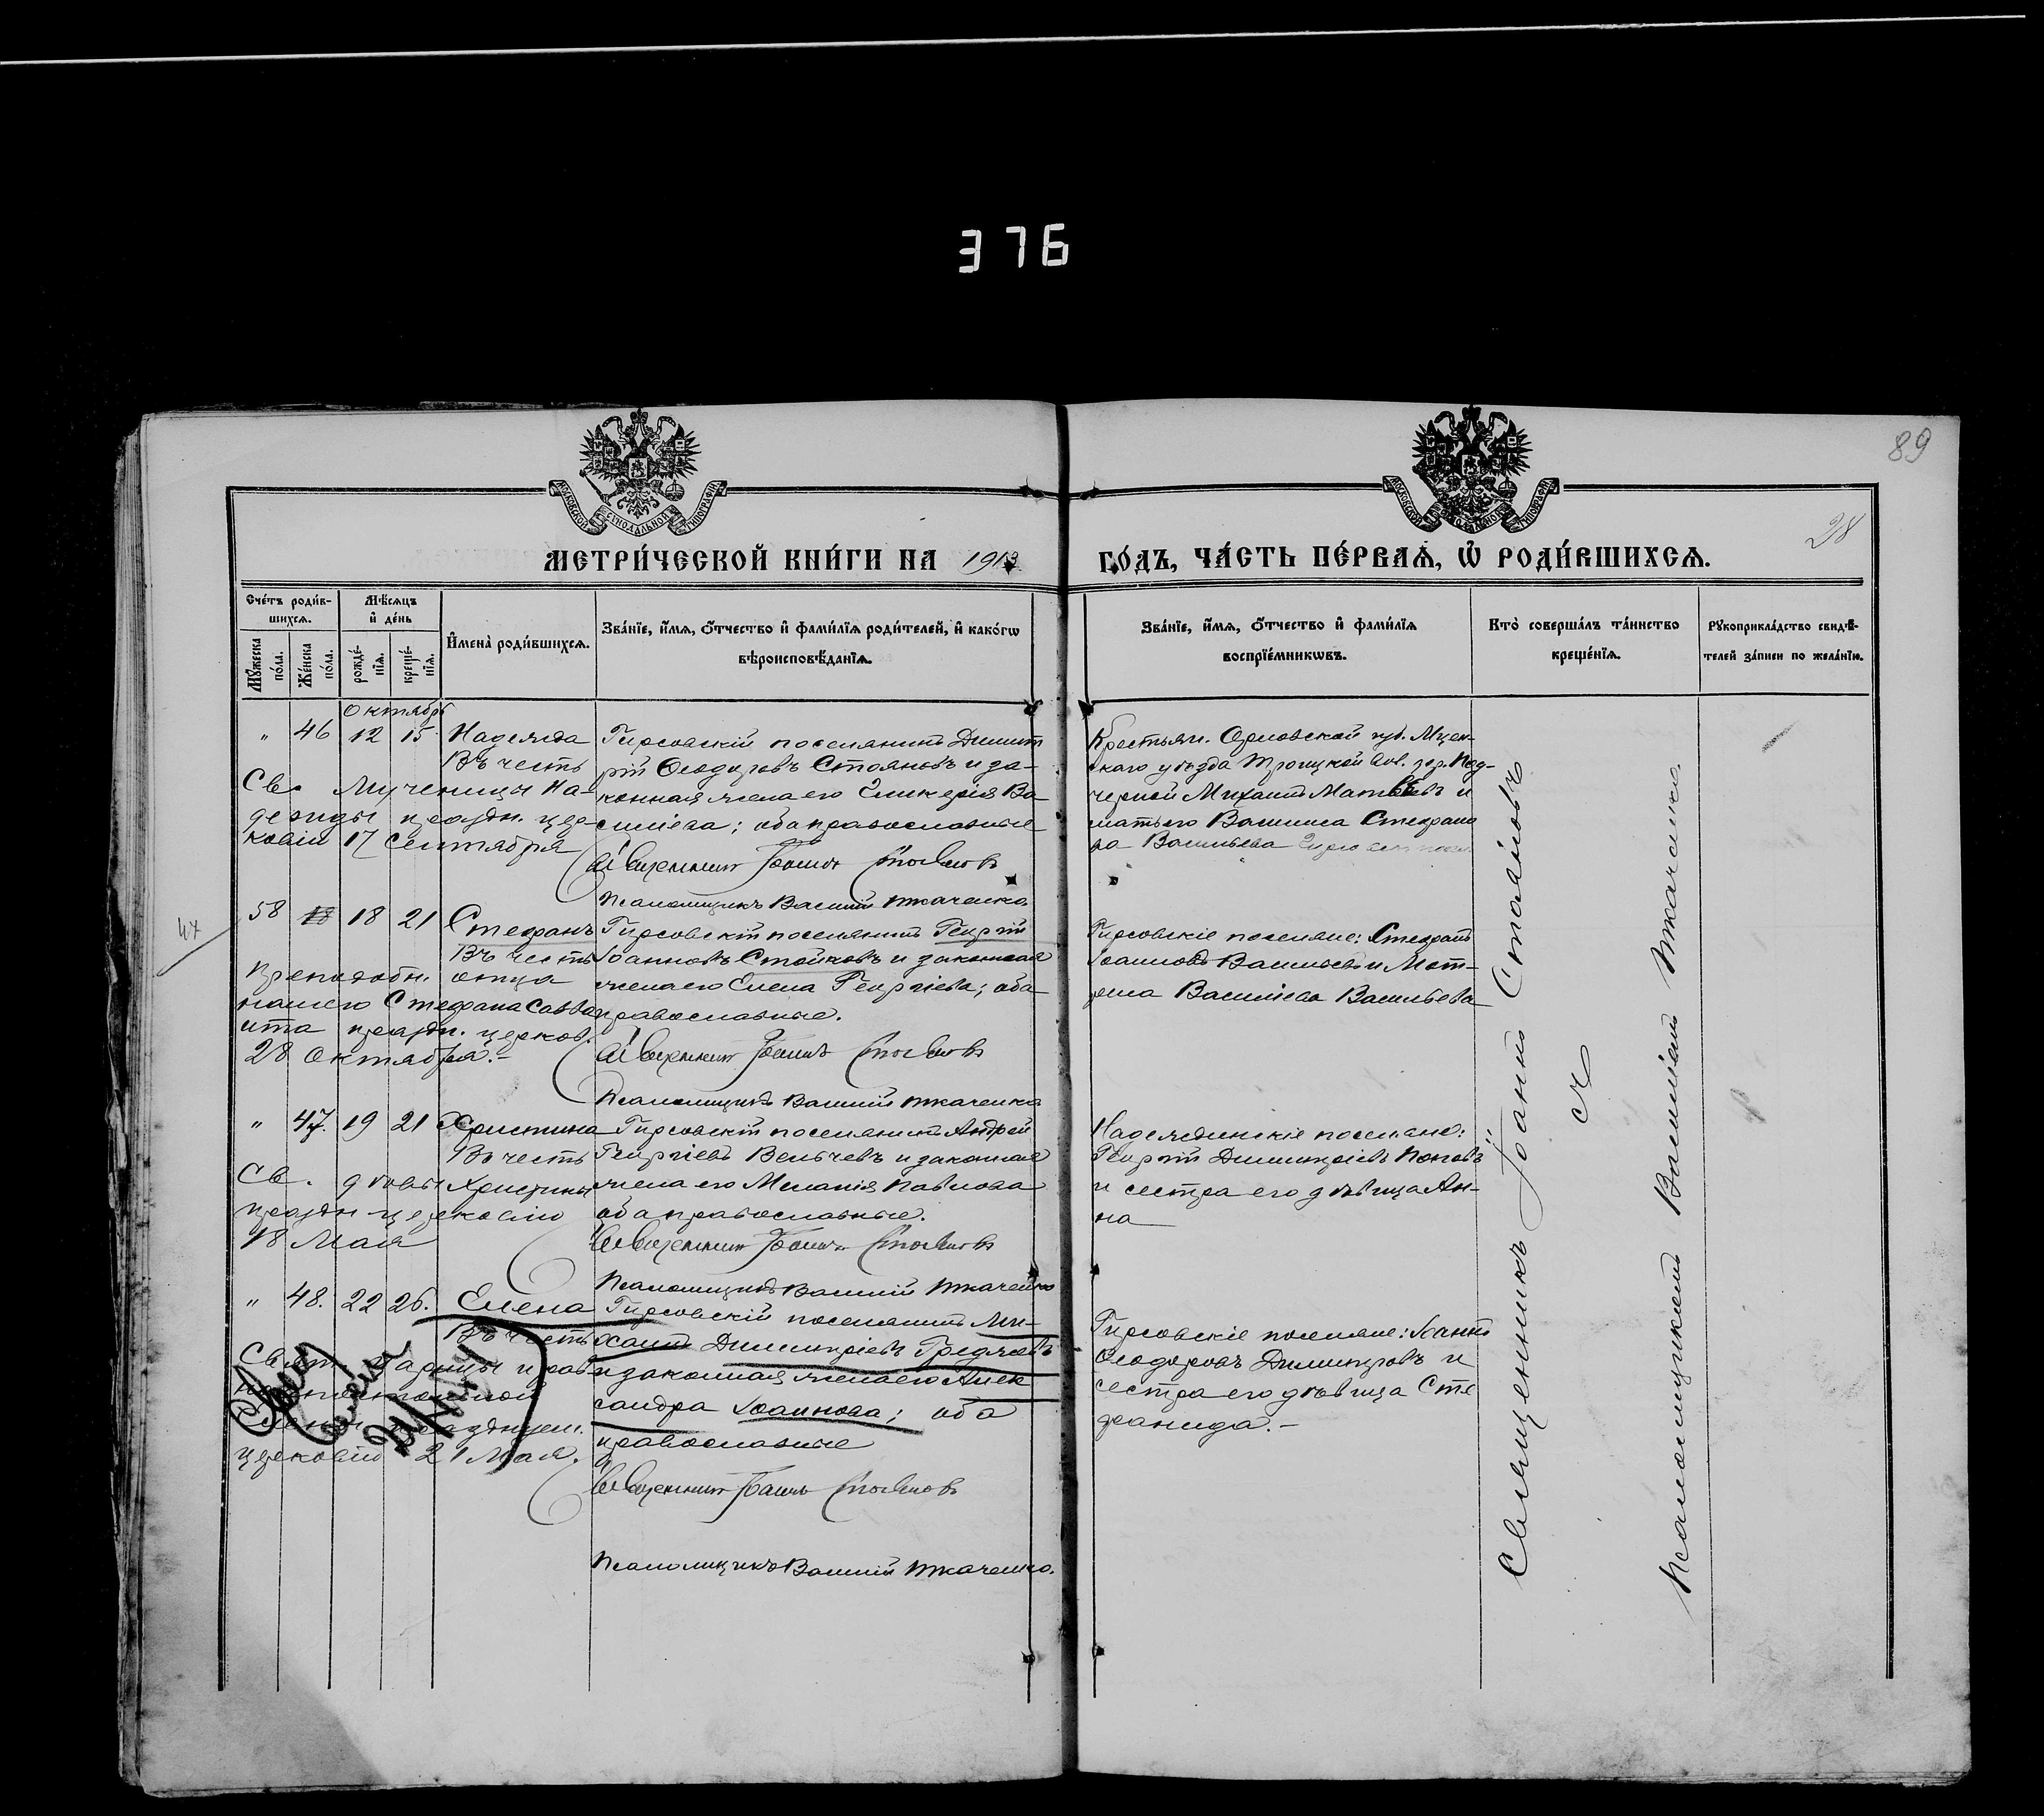 376
89
28
МОСКОВСКОЙ СѴНОДАЛЬНОЙ ТИПОГРАФІИ
МОСКОВСКОЙ СѴНОДАЛЬНОЙ ТИПОГРАФІИ
МЕТРИ́ЧЕСКОЙ КНИ́ГИ НА 1913
ГО́ДЪ, ЧА́СТЬ ПЕ́РВАѦ, Ѡ҆ РОДИ́ВШИХСѦ.
Сче́тъ роди́в-
шихсѧ.
Мꙋ́жеска по́ла.
Же́нска по́ла.
Мѣ́сѧцъ
и҆ де́нь
рожде́-
нїѧ.
креще́-
нїѧ.
И҆мена̀ роди́вшихсѧ.
Зва́нїе, и҆́мѧ, ѻ҆́тчество и҆ фами́лїѧ роди́телей, и҆ како́гѡ
вѣроисповѣ́данїѧ.
Зва́нїе, и҆́мѧ, ѻ҆́тчество и҆ фами́лїѧ
воспрїе́мникѡвъ.
Кто̀ соверша́лъ та́инство
креще́нїѧ.
Рꙋкоприкла́дство свидѣ́-
телей за́писи по жела́нїю.
Октябрь
" 46 12 15 Надежда
Въ честь
Св. Мученицы На-
дежды праздн. цер-
ковію 17 сентября
Гирсовскій поселянинъ Димит
рій Ѳеодоровъ Стояновъ и за-
конная жена его Гликерія Ва
силіева; оба православные
Священникъ Іоаннъ Стояновъ
Псаломщикъ Василій Ткаченко
Крестьян. Орловской губ. Мцен-
скаго уѣзда Троицкой вол. дер. Под-
черной Михаилъ Матвѣевъ и
58 18 21 Стефанъ
Въ честь
Преподобн. отца
нашего Стефана Савва
ита праздн. церков.
28 Октября.-
Гирсовскій поселянинъ Георгій
Іоанновъ Стойковъ и законная
жена его Елена Георгіева; оба
православные.
Священникъ Іоаннъ Стояновъ
Псаломщикъ Василій Ткаченко
Гирсовскіе поселяне: Стефанъ
Іоанновъ Васильевъ и Мат-
рена Василіева Васильева
" 47. 19 21 Христина
Въ честь
Св. дѣвы Христины
праздн церковію
18 Мая
Гирсовскій поселянинъ Андрей
Георгіевъ Вельчевъ и законная
жена его Меланія Павлова
оба православные.
Священникъ Іоаннъ Стояновъ
Псаломщикъ Василій Ткаченко
Надеждинскіе поселяне:
Георгій Димитріевъ Поповъ
и сестра его дѣвица Ан-
на
" 48. 22 26. Елена
Въ честь
Свят. Царицы и рав-
церковію 21 Мая.
Гирсовскій поселянинъ Ми-
хаилъ Димитріевъ Греджевъ
и законная жена его Алек
сандра Іоаннова; оба
православные
Священникъ Іоаннъ Стояновъ
Псаломщикъ Василій Ткаченко.
Гирсовскіе поселяне: Іоаннъ
Ѳеодоровъ Димитровъ и
сестра его дѣвица Сте
фанида.-
Священникъ Іоаннъ Стояновъ
съ
Псаломщикомъ Василіемъ Ткаченко.